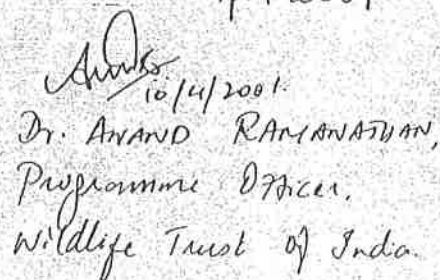 10/4/2001.
Dr. ANAND RAMANATHAN,
Programme Officer,
Wildlife Trust of India.